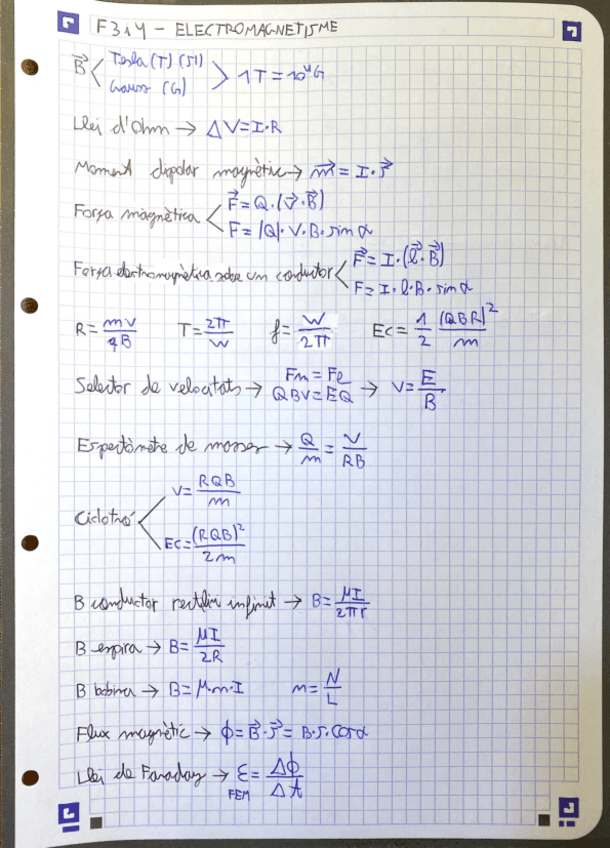 F3i4 - ELECTROMAGNETISME
B⃗ < Tesla (T) (SI) / Gauss (G) > 1T = 10⁴G
Llei d'Ohm → ΔV = I·R
Moment dipolar magnètic → m⃗ = I·S⃗
Força magnètica < F⃗ = Q·(v⃗·B⃗)
F = |Q|·V·B·sin α
Força electromagnètica sobre un conductor < F⃗ = I·(l⃗·B⃗)
F = I·l·B·sin α
R = mv/qB T = 2π/w f = w/2π Ec = 1/2 (QBR)²/m
Selector de velocitats → Fm = Fe
QBV = EQ → V = E/B
Espectòmetre de masses → Q/m = V/RB
Ciclotró < V = RQB/m
Ec = (RQB)²/2m
B conductor rectilini infinit → B = μI/2πr
B espira → B = μI/2R
B bobina → B = μ·m·I m = N/L
Flux magnètic → ϕ = B⃗·S⃗ = B·S·cos α
Llei de Faraday → ε = Δϕ/Δt
FEM